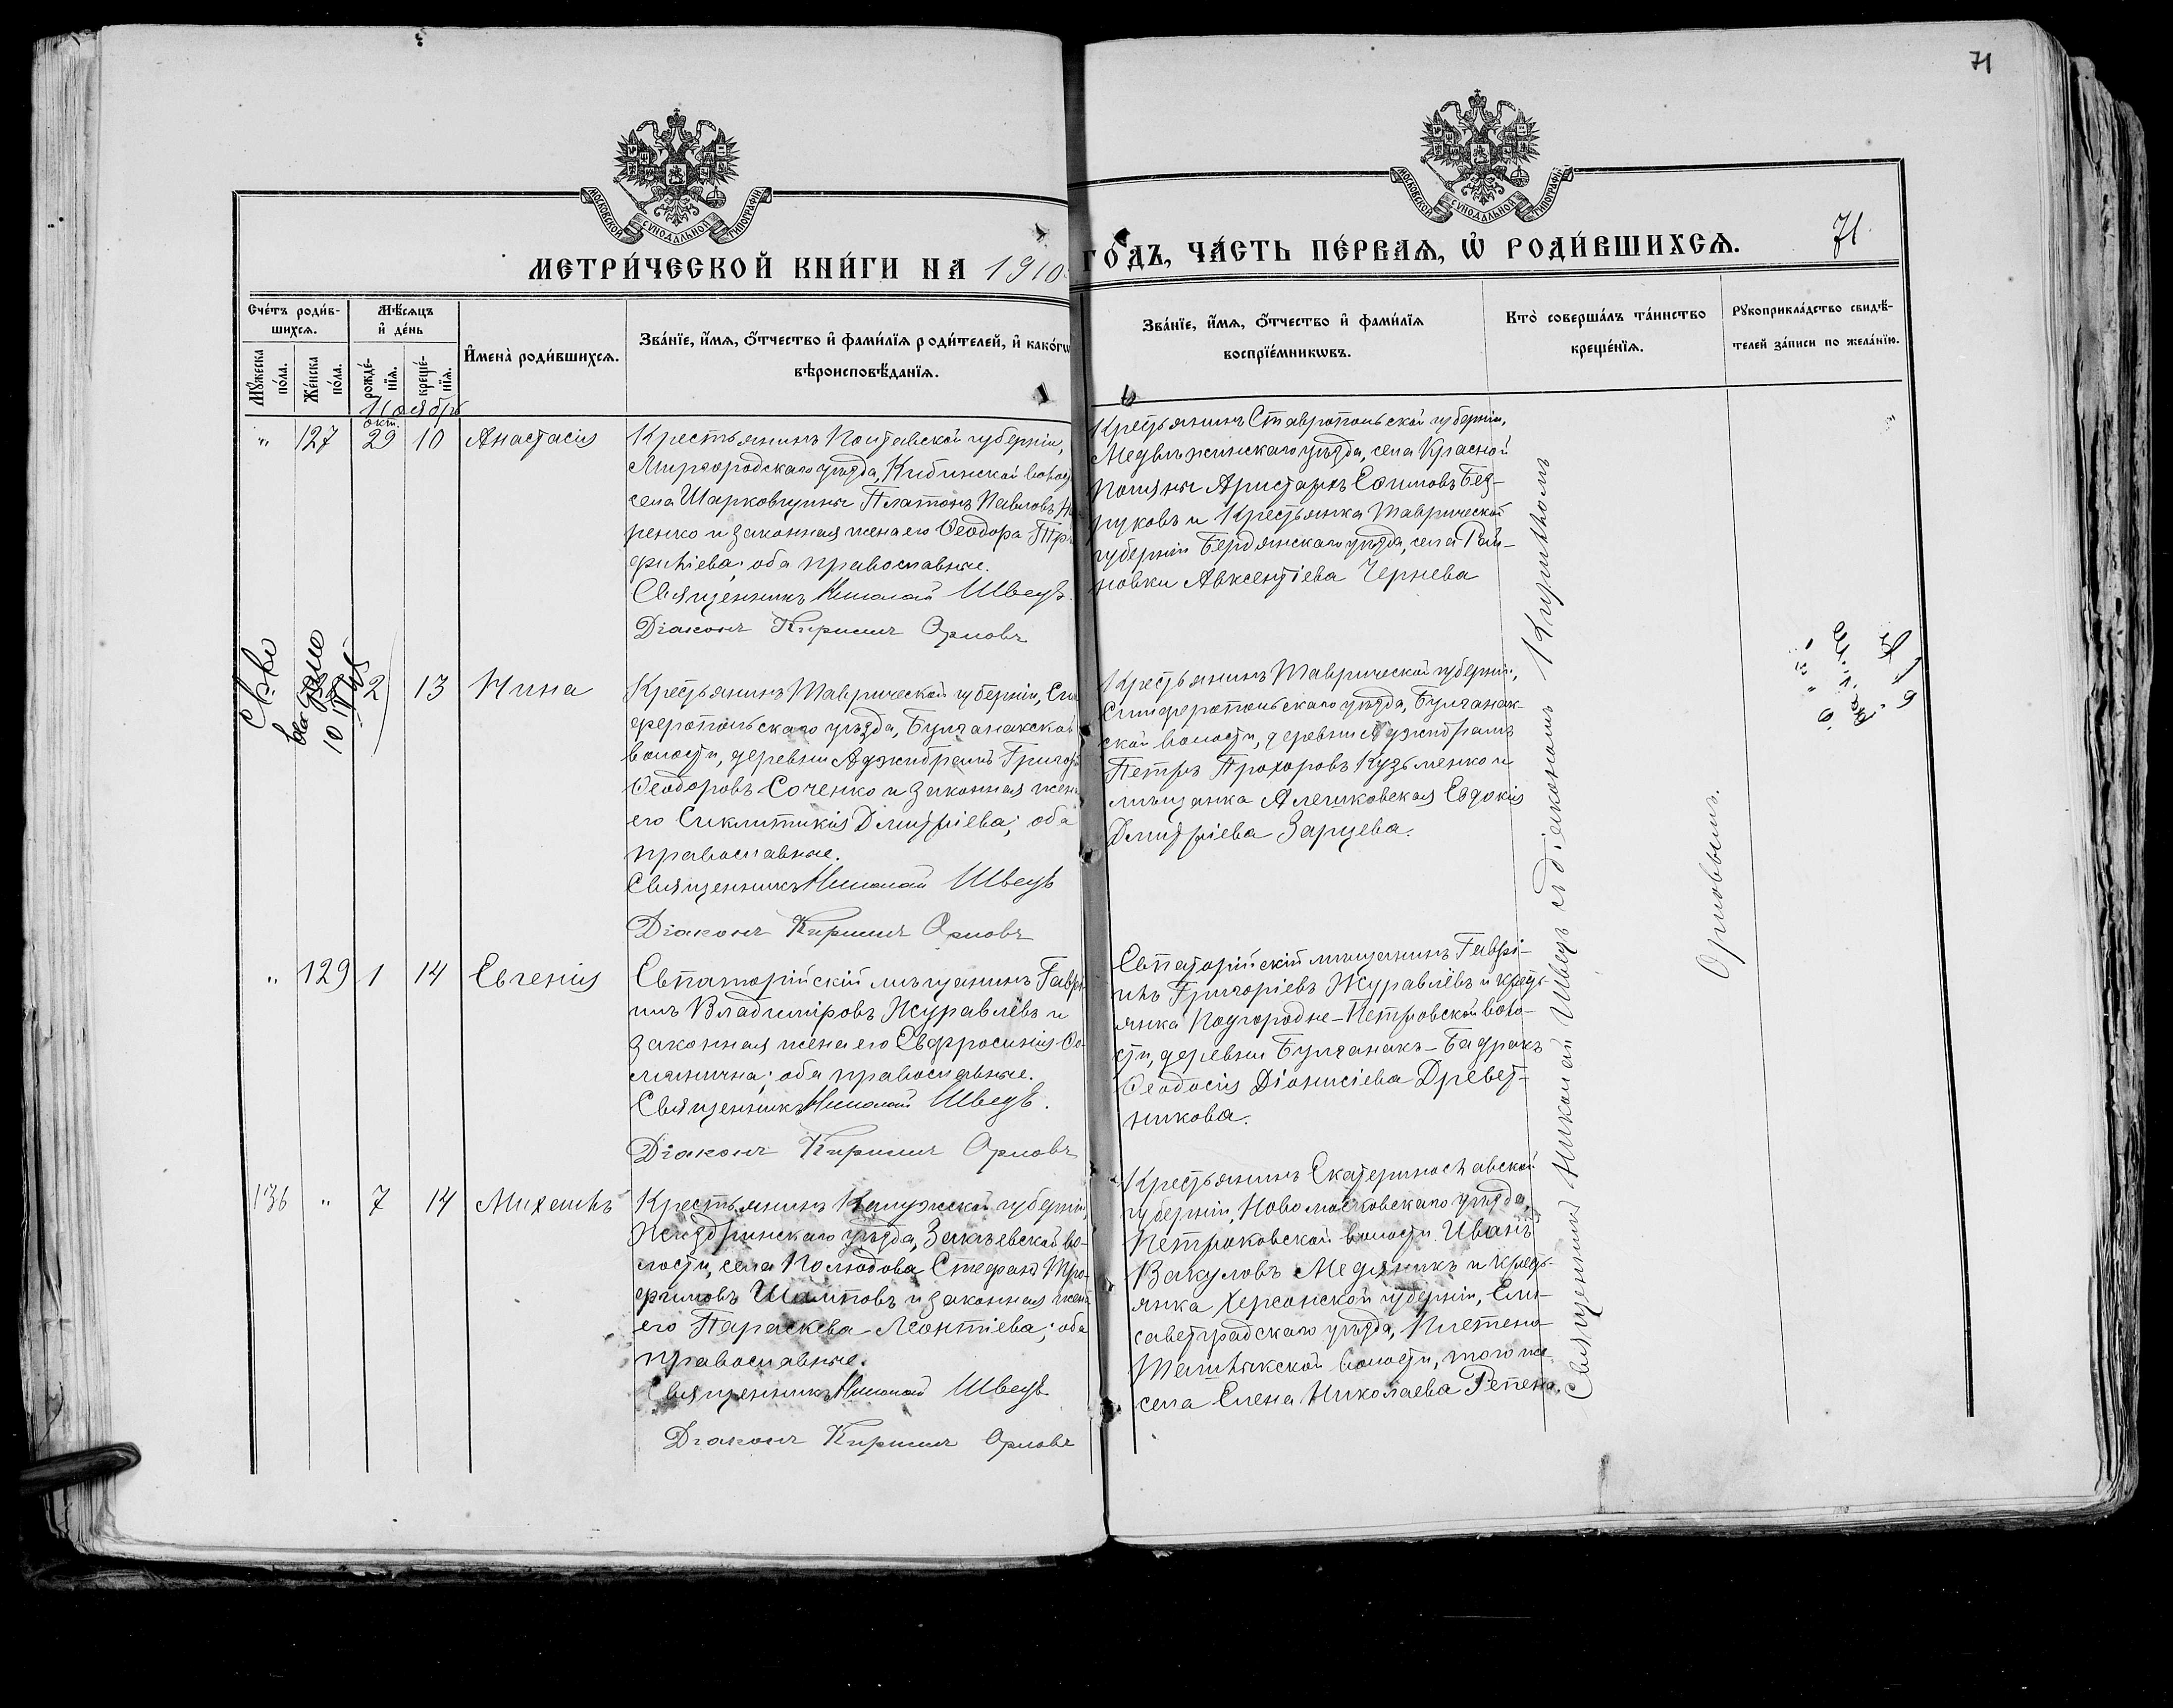 71
МОСКОВСКОЙ СУНОДАЛЬНОЙ ТИПОГРАФІИ
МОСКОВСКОЙ СУНОДАЛЬНОЙ ТИПОГРАФІИ
МЕТРИ́ЧЕСКОЙ КНИ́ГИ НА 1910
ГО́ДЪ, ЧА́СТЬ ПЕ́РВАѦ, Ѡ҆ РОДИ́ВШИХСѦ.
71.
Сче́тъ роди́в-
шихсѧ.
Мꙋ́жеска по́ла.
Же́нска по́ла.
Мѣ́сѧцъ
и҆ де́нь
рожде́-нїѧ.
креще́-нїѧ.
И҆мена̀ роди́вшихсѧ.
Зва́нїе, и҆́мѧ, ѻ҆́тчество и҆ фами́лїѧ роди́телей, и҆ како́гѡ
вѣроисповѣ́данїѧ.
Зва́нїе, и҆́мѧ, ѻ҆́тчество и҆ фами́лїѧ
воспрїе́мникѡвъ.
Кто̀ соверша́лъ та́инство
креще́нїѧ.
Рꙋкоприкла́дство свидѣ́-
телей за́писи по жела́нїю.
Ноября
окт.
" 127 29 10 Анастасія
Крестьянинъ Полтавской губерніи,
Миргородскаго уѣзда, Кибинской волос
села Шарковщины Платонъ Павловъ
ренко и законная жена его Ѳеодора
филіева; оба православные.
Священникъ Николай Швецъ.
Діаконъ Кириллъ Орловъ
Крестьянинъ Ставропольской губерніи,
Медвѣжинскаго уѣзда, села Красной
Поляны Аристархъ Ефимовъ Без-
руковъ и Крестьянка Таврической
губерніи Бердянскаго уѣзда, села Рай-
новки Авксентіева Чернева
2 13 Нина
Крестьянинъ Таврической губерніи, Сим
феропольскаго уѣзда, Булганакской
волости, деревни Аджибрамъ Григор
Ѳеодоровъ Соченко и законная жена
его Синклитикія Дмитріева; оба
православные.
Священникъ Николай Швецъ
Діаконъ Кириллъ Орловъ
Крестьянинъ Таврической губерніи,
Симферопольскаго уѣзда, Булганак-
ской волости, деревни Аджибрамъ
Петръ Прохоровъ Кузьменко и
мѣщанка Алешковская Евдокія
Дмитріева Зарцева.
" 129 1 14 Евгенія
Евпаторійскій мѣщанинъ Гаврі
илъ Владиміровъ Журавлёвъ и
законная жена его Евфросинія Ѳо-
минична; оба православные.
Священникъ Николай Швецъ.
Діаконъ Кириллъ Орловъ
Евпаторійскій мѣщанинъ Гаврі-
илъ Григоріевъ Журавлёвъ и кресть-
янка Подгородне-Петровской воло-
сти, деревни Булганакъ-Бадракъ
Ѳеодосія Діонисіева Древет-
никова.
136 " 7 14 Михаилъ
Крестьянинъ Калужской губерніи,
Жиздринскаго уѣзда, Закаевской во-
лости, села Полюдова Стефанъ Тро-
фимовъ Шамповъ и законная жена
его Параскева Леонтіева; оба
православные.
Священникъ Николай Швецъ
Діаконъ Кириллъ Орловъ
Крестьянинъ Екатеринославской
губерніи, Новомосковскаго уѣзда,
Петриковской волости Иванъ
Вакуловъ Медяникъ и кресть-
янка Херсонской губерніи, Ели-
саветградскаго уѣзда, Плетено-
Ташлыкской волости, того же
села Елена Николаева Репена.
Священникъ Николай Швецъ съ діакономъ Кирилломъ
Орловымъ.